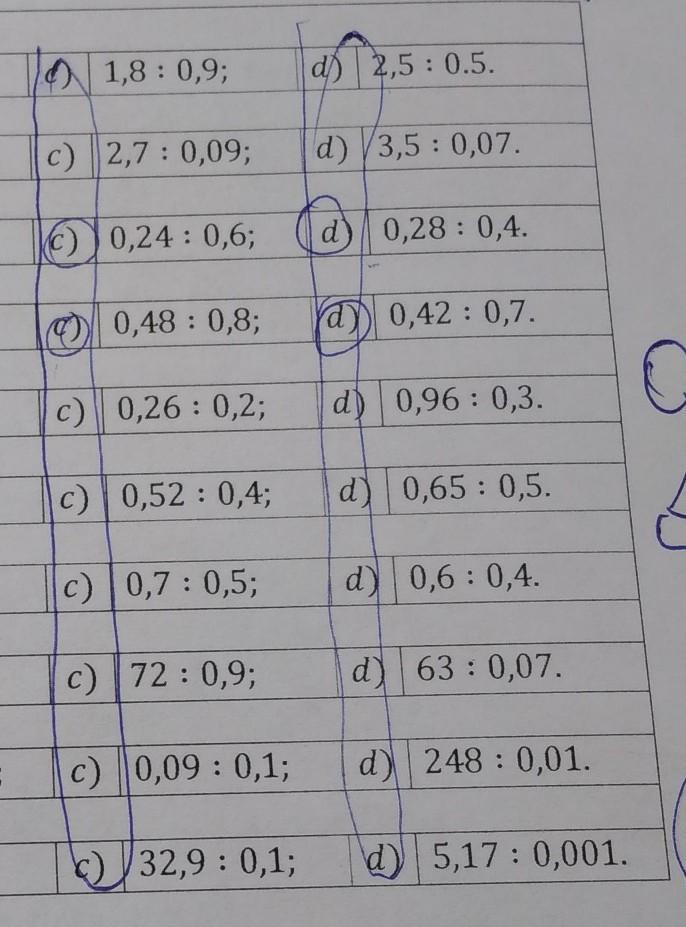 c) 1,8 : 0,9; d) 2,5 : 0.5.
c) 2,7 : 0,09; d) 3,5 : 0,07.
c) 0,24 : 0,6; d) 0,28 : 0,4.
c) 0,48 : 0,8; d) 0,42 : 0,7.
c) 0,26 : 0,2; d) 0,96 : 0,3.
c) 0,52 : 0,4; d) 0,65 : 0,5.
c) 0,7 : 0,5; d) 0,6 : 0,4.
c) 72 : 0,9; d) 63 : 0,07.
; c) 0,09 : 0,1; d) 248 : 0,01.
c) 32,9 : 0,1; d) 5,17 : 0,001.